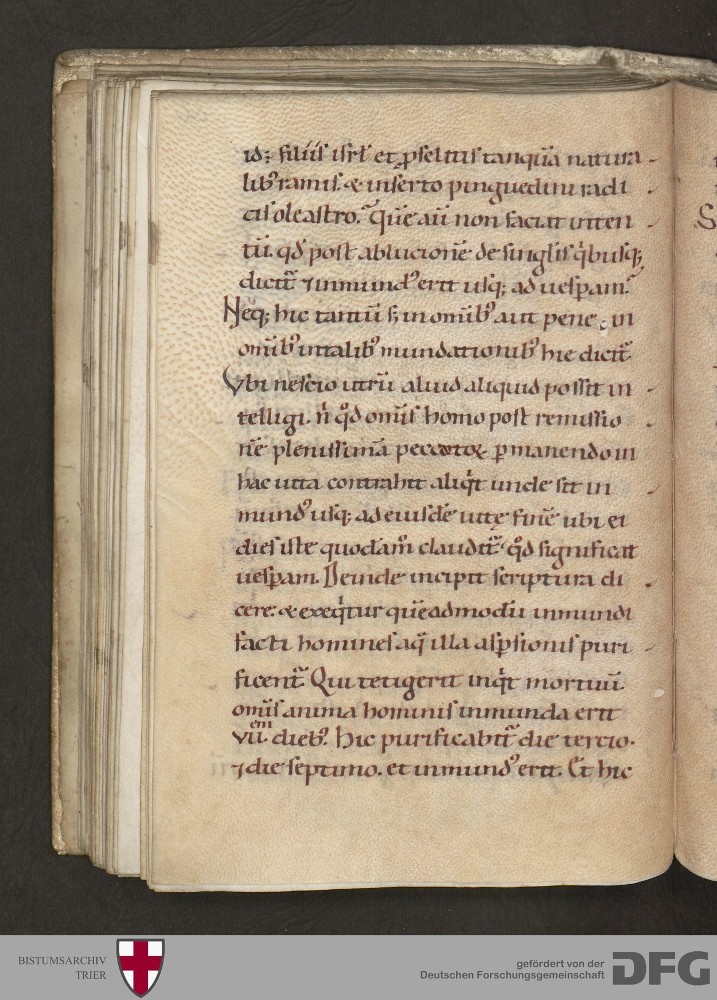 id; filiis isrl et pselitis tanquā natura
lib' ramis. & inserto pinguedini radi
cis oleastro. quē aū non faciat inten
tū. qd post ablucionē de singlis qbusq;
dicit̄ & inmund' erit usq; ad uesp̄am.
Neq; hic tantū s; in omīb' aut pene in
omīb' vitalib' mundationib' hic dicit̄
Vbi nescio utrū aliud aliquid possit in
telligi. n̄ qd omīs homo post remissio
nē plenissimā peccatoꝝ p̄manendo in
hac uita contrahit aliqt unde sit in
mund' usq; ad eiusdē uitę finē ubi ei
dies iste quodam̄ claudit̄. qd significat
uesp̄am. Deinde incipit scriptura di
cere. & exeqitur quēadmodū inmundi
facti homines aq̄ illa asp̄sionis puri
ficent̄. Qui tetigerit inqt mortuū.
omīs anima hominis inmunda erit
em
vii. dieb'. Hic purificabit̄ die tercio.
& die septimo. et inmund' erit. Et hic
BISTUMSARCHIV
TRIER
gefördert von der
Deutschen Forschungsgemeinschaft
DFG